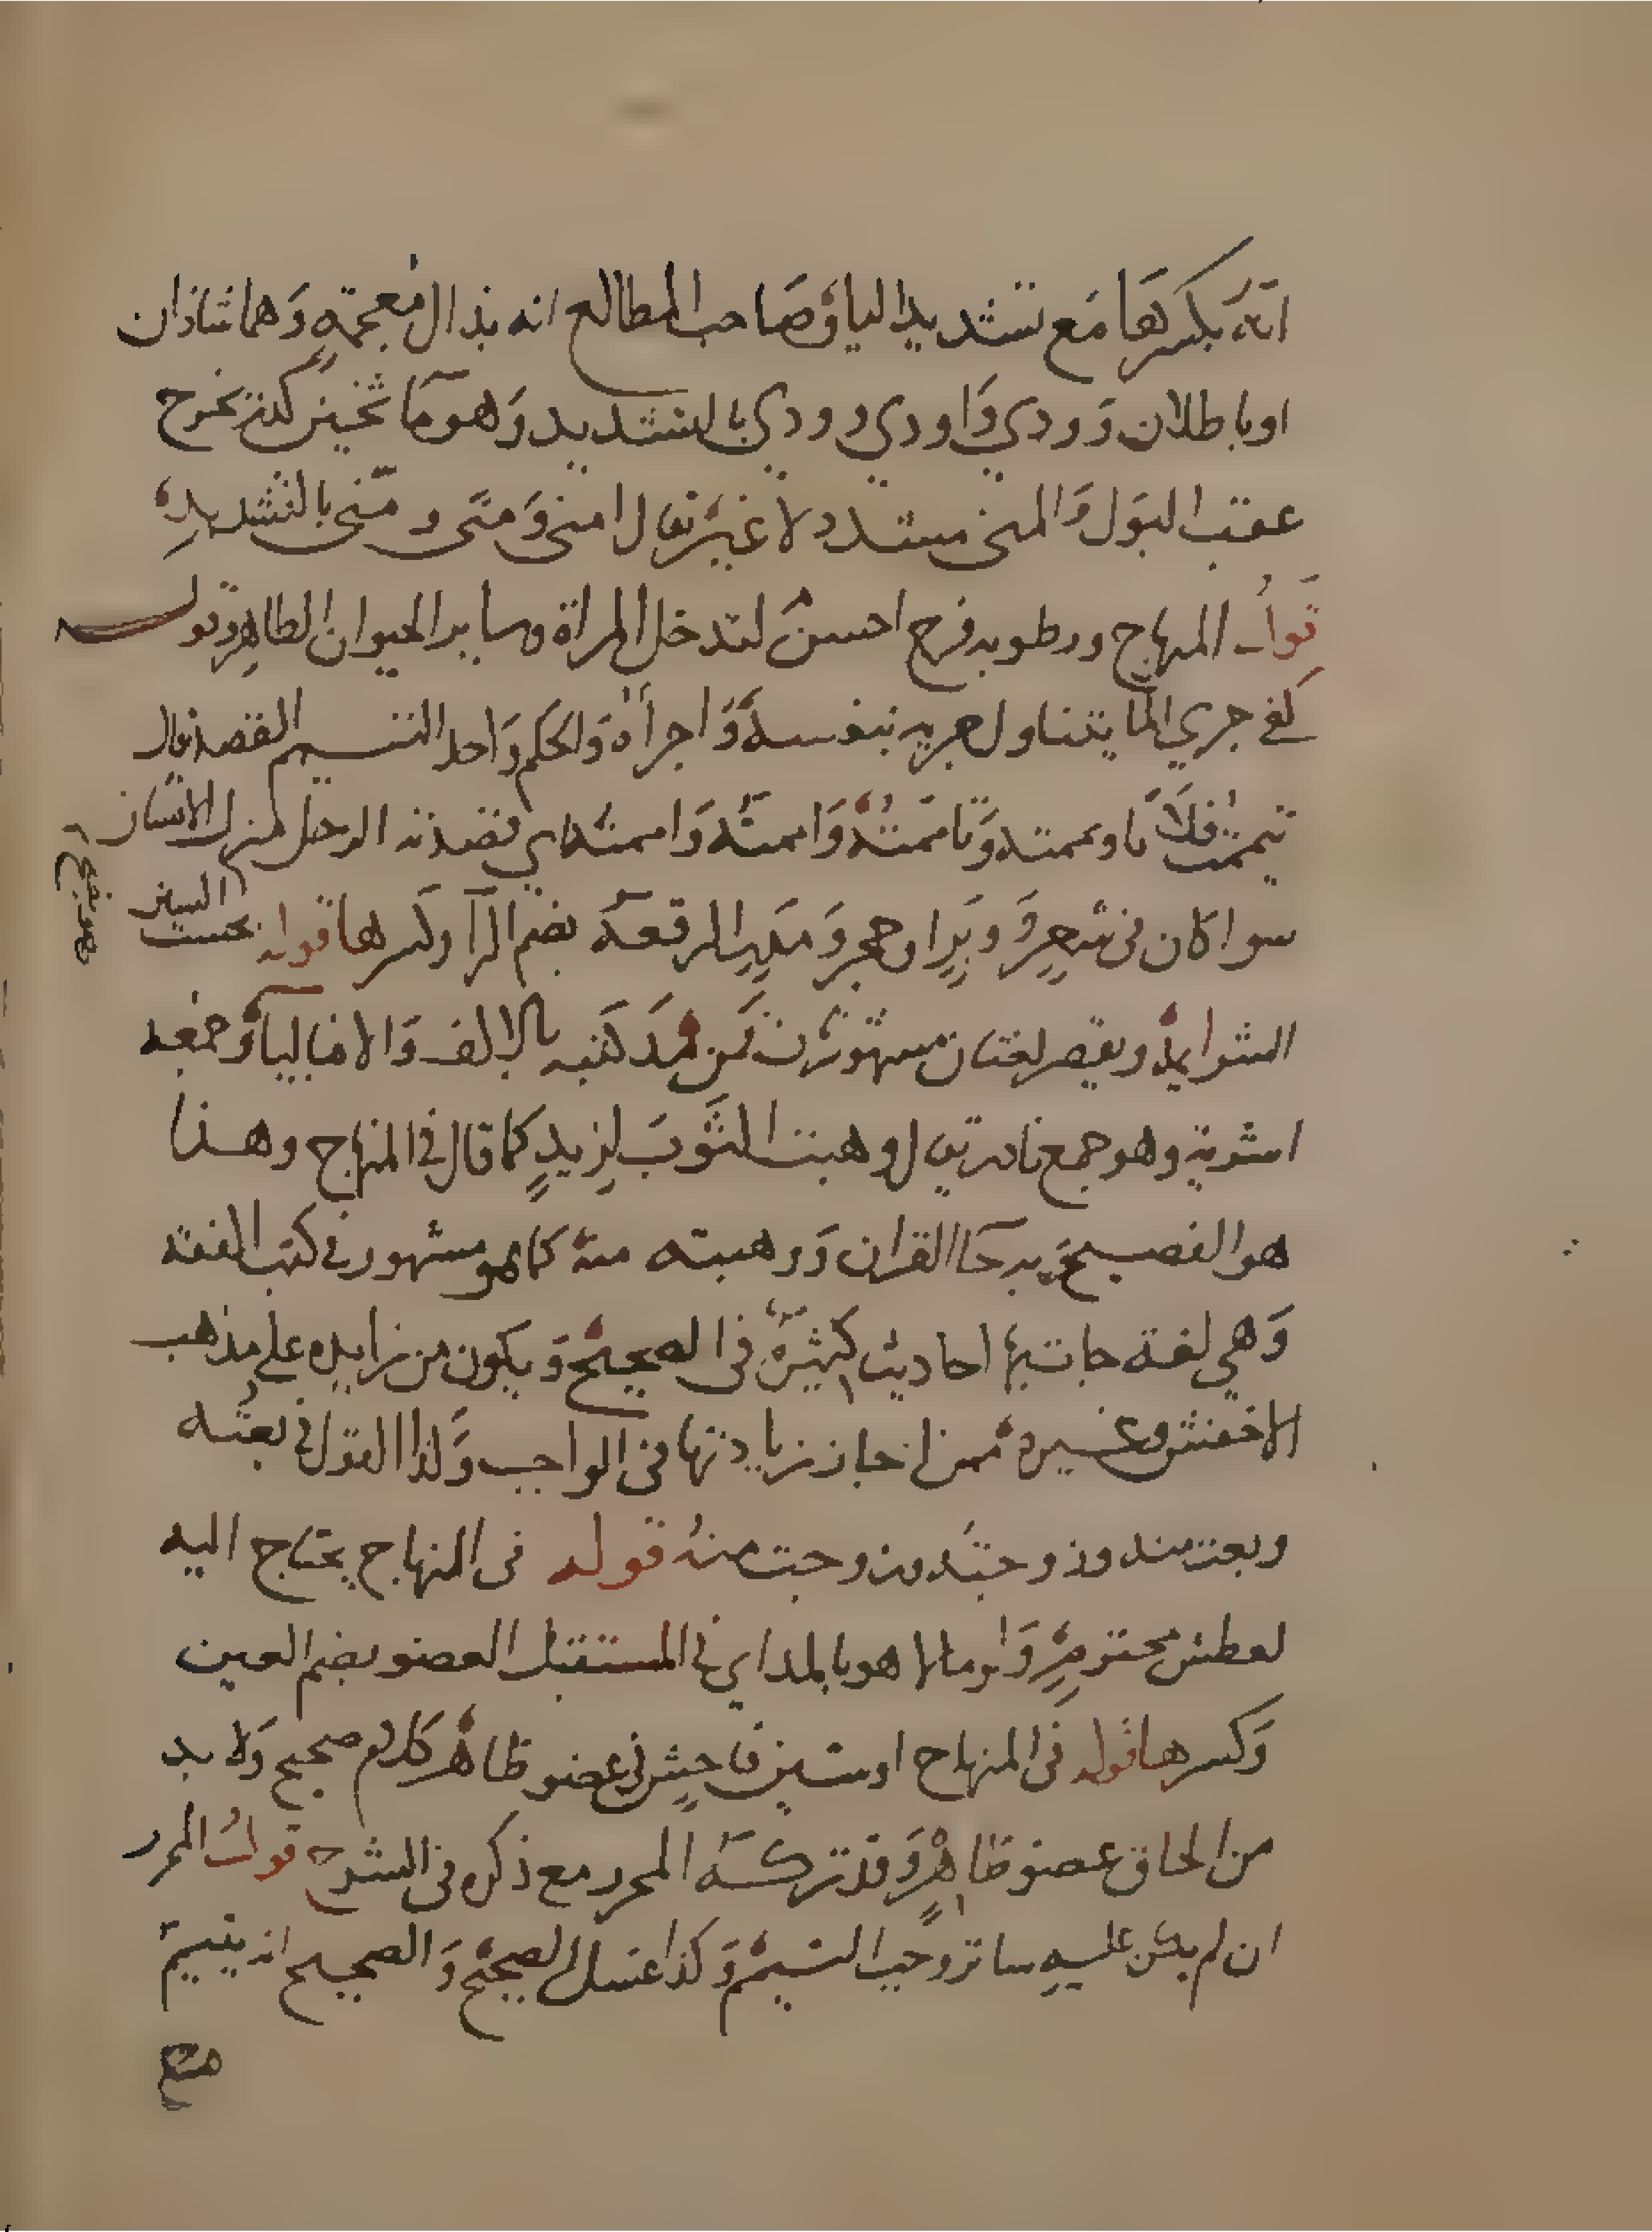 انه بكسرها مع تشديد اليا وصاحب المطالع انه بذال معجمة وهما شاذان
او باطلان وودي واودي وودي بالتشديد وهو ما ثخين كدر يخرج
عقب البول والمني مشدد لا غير يقال امنى ومنى ومنّى بالتشديد
قول المنهاج ورطوبه فرج احسن لتدخل المراة وساير الحيوان الطاهر قوله
كفي جري الما يتناول جريه بنفسه واجراه والحكم واحد التيمم القصد يقال
تيممت فلانا ويممته وتاممته واممته واممته اي قصدته الرحل منزل الانسان
سوا كان في شعر و وبر او حجر ومدر الرقعة بضم الرا وكسرها قوله بحسب السفر
الشرا يمد ويقصر لغتان مشهورتان فمن مد كتبه بالالف والا فباليا وجمعه
اشرية وهو جمع نادر تقول وهبت الثوب لزيد كما قال في المنهاج وهذا
هو الفصيح وبه جا القران ووهبته منه كما هو مشهور في كتب الفقه
وهي لغة جات بها احاديث كثيرة في الصحيح ويكون من زايده على مذهب
الاخفش وغيره ممن اجاز زيادتها في الواجب وكذا القول في بعته
وبعت منه وزوجته وزوجت منه قوله في المنهاج يحتاج اليه
لعطش محترم ولو مالا هو بالمد اي في المستقبل العضو بضم العين
وكسرها قوله في المنهاج او شين فاحش في عضو ظاهر كلام صحيح ولا بد
من الحاق عضو ظاهر وقد تركه المحرر مع ذكره في الشرح قول المحرر
ان لم يكن عليه ساتر وجب التيمم وكذا غسل الصحيح والصحيح انه يتيمم